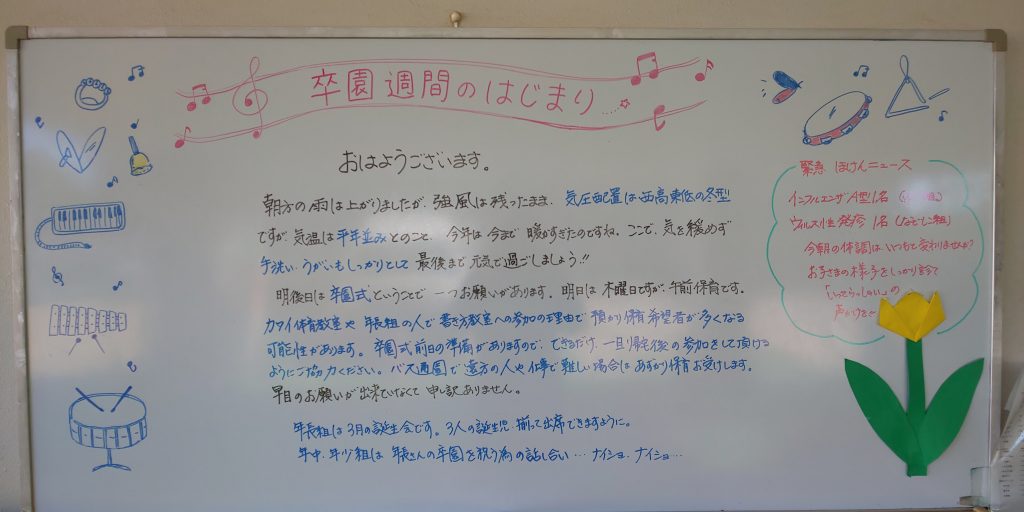 卒園週間のはじまり……☆
おはようございます。
朝方の雨は上がりましたが、強風は残ったまま、気圧配置は西高東低の冬型
ですが、気温は平年並みとのこと、今年は今まで暖かすぎたのですね。ここで、気を緩めず
手洗い、うがいもしっかりとして最後まで元気で過ごしましょう!!
明後日は卒園式ということで一つお願いがあります。明日は木曜日ですが、午前保育です。
カワイ体育教室や年長組の人で書き方教室への参加の理由で預かり保育希望者が多くなる
可能性があります。卒園式前日の準備がありますので、できるだけ、一旦帰宅後の参加をして頂ける
ようにご協力ください。バス通園で遠方の人や仕事で難しい場合はあずかり保育お受けします。
早目のお願いが出来ていなくて申し訳ありません。
年長組は3月の誕生会です。3人の誕生児、揃って出席できますように。
年中、年少組は年長さんの卒園を祝う為の話し合い…ナイショ、ナイショ…
緊急 ほけんニュース
インフルエンザA型1名
ウィルス性発疹1名(なでしこ組)
今朝の体調はいつもと変わりませんか?
お子さまの様子をしっかり診て
「いってらっしゃい」の
声かけを